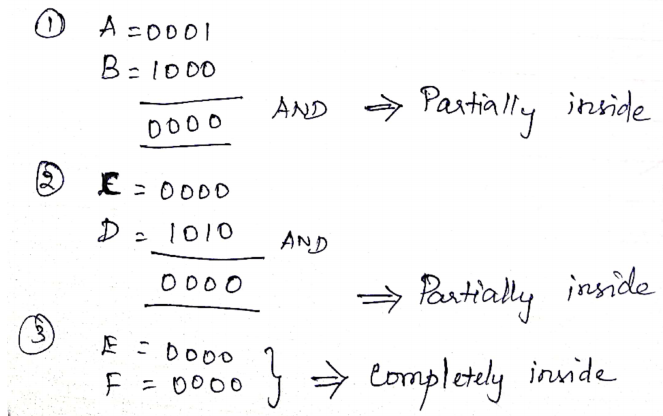 ① A = 0001
B = 1000
0000 AND ⇒ Partially inside
② C = 0000
D = 1010 AND
0000 ⇒ Partially inside
③ E = 0000
F = 0000 } ⇒ Completely inside